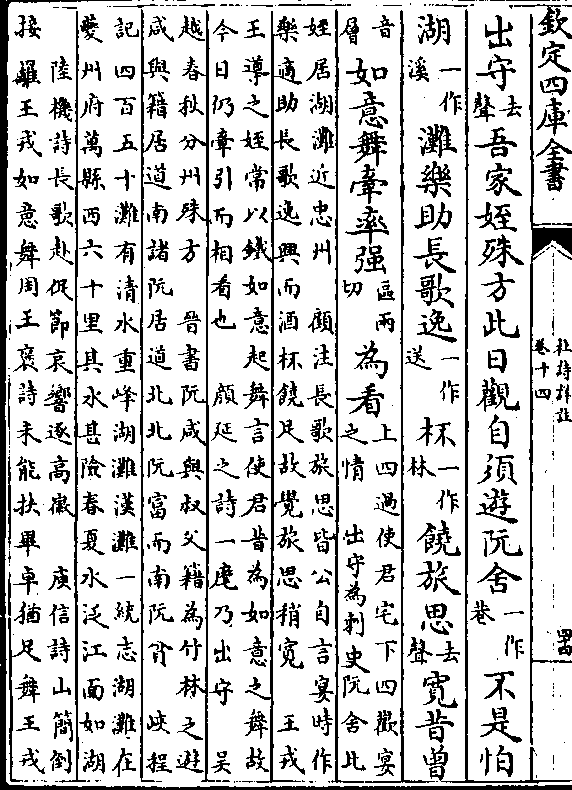 欽定四庫全書
杜詩詳註
卷十四
出守去聲吾家姪殊方此日觀自須遊阮舍一作巷不是怕
湖一作溪灘樂助長歌逸一作送杯一作林饒旅思去聲寛昔曾
音層如意舞牽率强區兩切為看上四過使君宅下四歡宴之情　出守為刺史阮舍比
姪居湖灘近忠州　顧注長歌旅思皆公自言宴時作
樂適助長歌逸興而酒杯饒足故覺旅思稍寛　王戎
王導之姪常以鐵如意起舞言使君昔為如意之舞故
今日仍牽引而相看也　顔延之詩一麾乃出守　吳
越春秋分州殊方　晉書阮咸與叔父籍為竹林之遊
咸與籍居道南諸阮居道北北阮富而南阮貧　峽程
記四百五十灘有清水重峰湖灘漢灘一統志湖灘在
夔州府萬縣西六十里其水甚險春夏水泛江面如湖
陸機詩長歌赴促節哀響逐高徽　庾信詩山簡倒
接䍦王戎如意舞周王褒詩未能扶畢卓猶足舞王戎